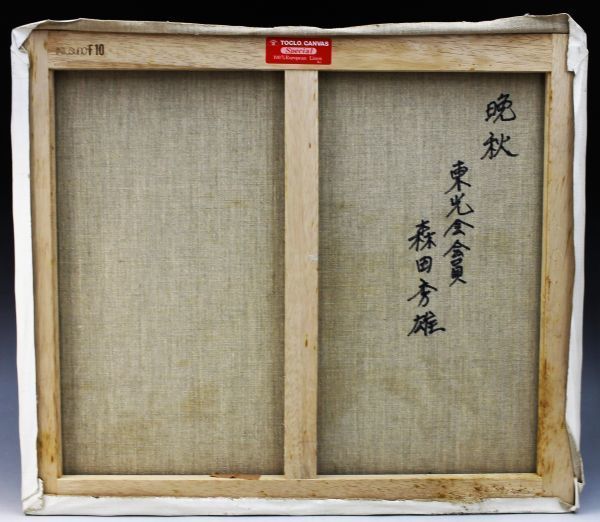 F10
TOCLO CANVAS
Special
100% European Linen
晩秋
東光会会員
森田秀雄